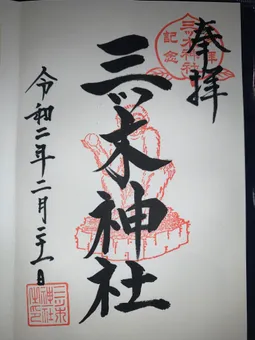 奉拝
三ツ木神社
令和二年二月二十一日
三ツ木神社
記念